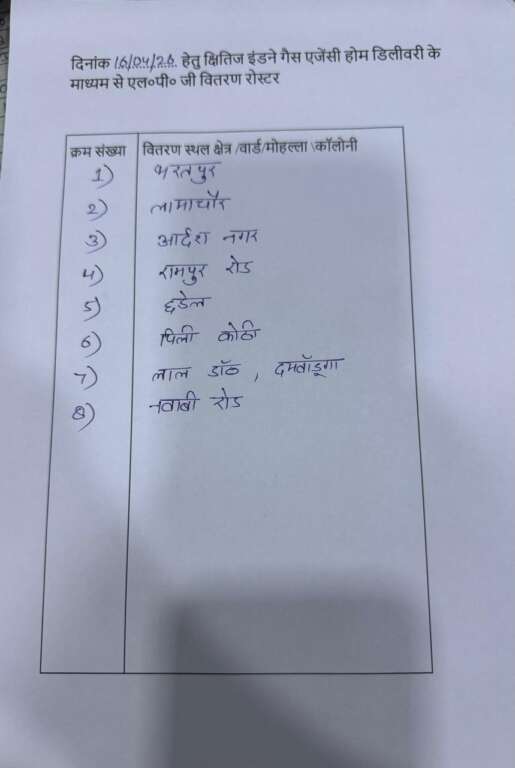 दिनांक 16/04/26 हेतु क्षितिज इंडने गैस एजेंसी होम डिलीवरी के
माध्यम से एल०पी० जी वितरण रोस्टर
क्रम संख्या वितरण स्थल क्षेत्र /वार्ड/मोहल्ला \कॉलोनी
1) भरतपुर
2) लामाचौर
3) आर्दश नगर
4) रामपुर रोड
5) छडेल
6) पिली कोठी
7) लाल डॉठ , दमवॉढूगा
8) नवाबी रोड